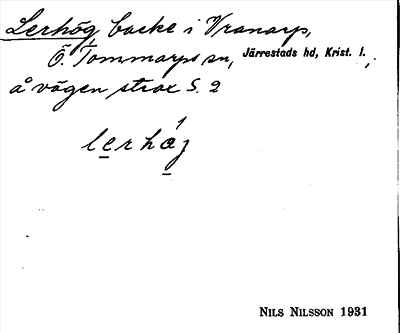 Lerhög backe i Vranarp,
Ö. Tommarps sn, Järrestads hd, Krist. l.,
å vägen strax S. 2
lerhǿʒ
NILS NILSSON 1931